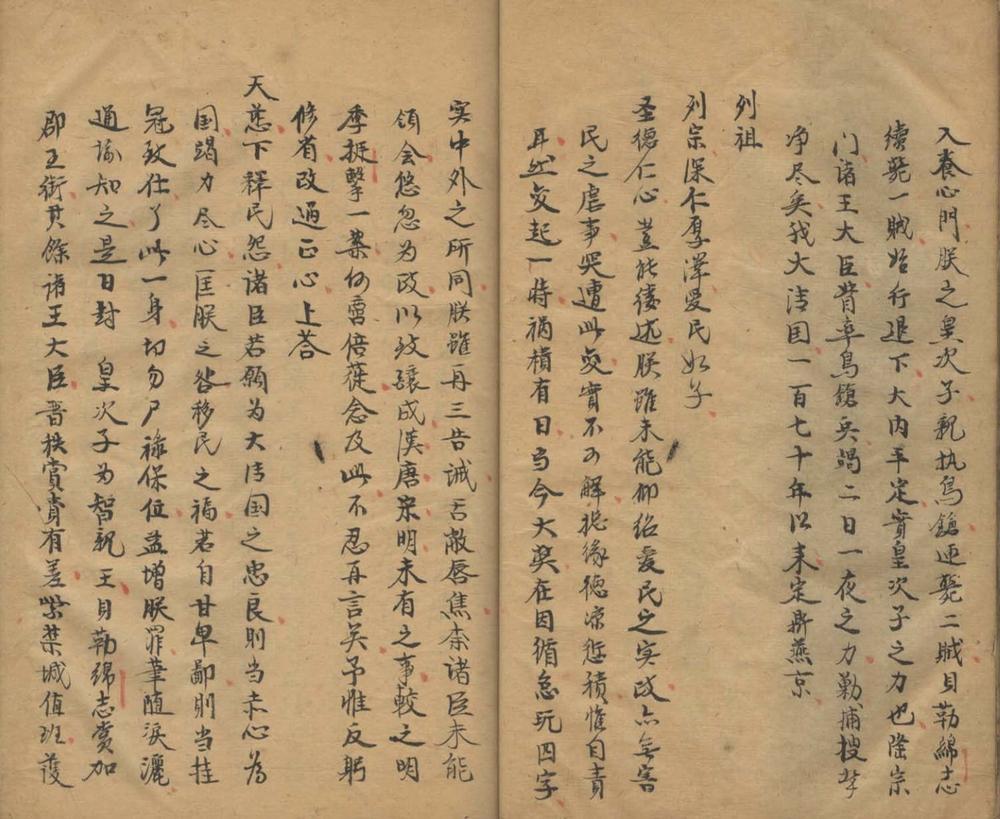 入養心門朕之皇次子親执鳥鎗連斃二賊貝勒綿志
續斃一賊始行退下大内平定實皇次子之力也隆宗
门诸王大臣督率鳥鎗兵竭二日一夜之力勦捕搜拏
净尽矣我大清国一百七十年以来定鼎燕京
列祖
列宗深仁厚澤爱民如子
圣德仁心豈能缕述朕虽未能仰绍爱民之实政亦无害
民之虐事突遭此变實不可解总缘德凉愆積惟自责
耳然变起一時祸積有日当今大獘在因循怠玩四字
实中外之所同朕雖再三告诫舌敝唇焦柰诸臣未能
领会悠忽为政以致酿成漢唐宋明未有之事較之明
季挺擊一案何啻倍蓰念及此不忍再言矣予惟反躬
修省改過正心上荅
天慈下釋民怨诸臣若願为大清国之忠良則当赤心为
国竭力尽心匡朕之咎移民之福若自甘卑鄙則当挂
冠致仕了此一身切勿尸禄保位益增朕罪筆随淚灑
通谕知之是日封 皇次子为智親王貝勒绵志賞加
郡王銜其餘诸王大臣晋秩賞賚有差紫禁城值班護